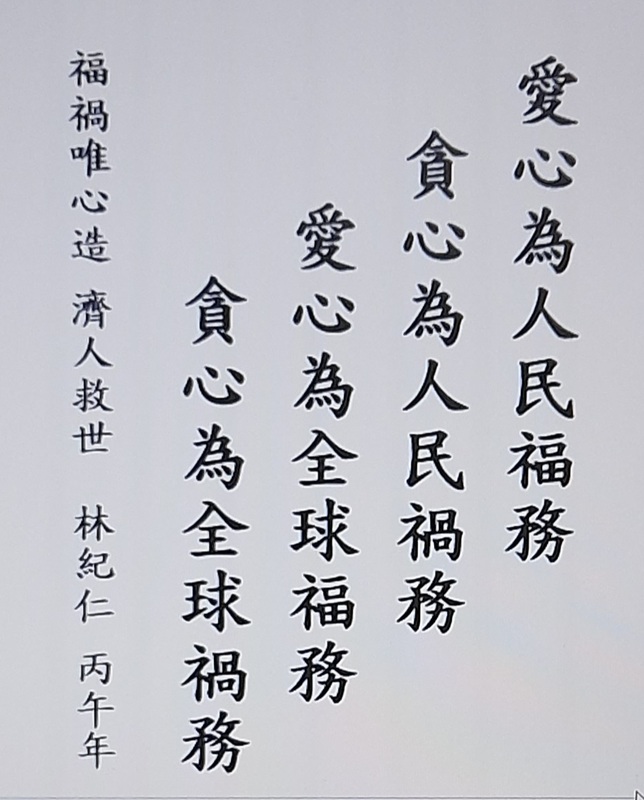 愛心為人民福務
貪心為人民禍務
愛心為全球福務
貪心為全球禍務
福禍唯心造 濟人救世 林紀仁 丙午年